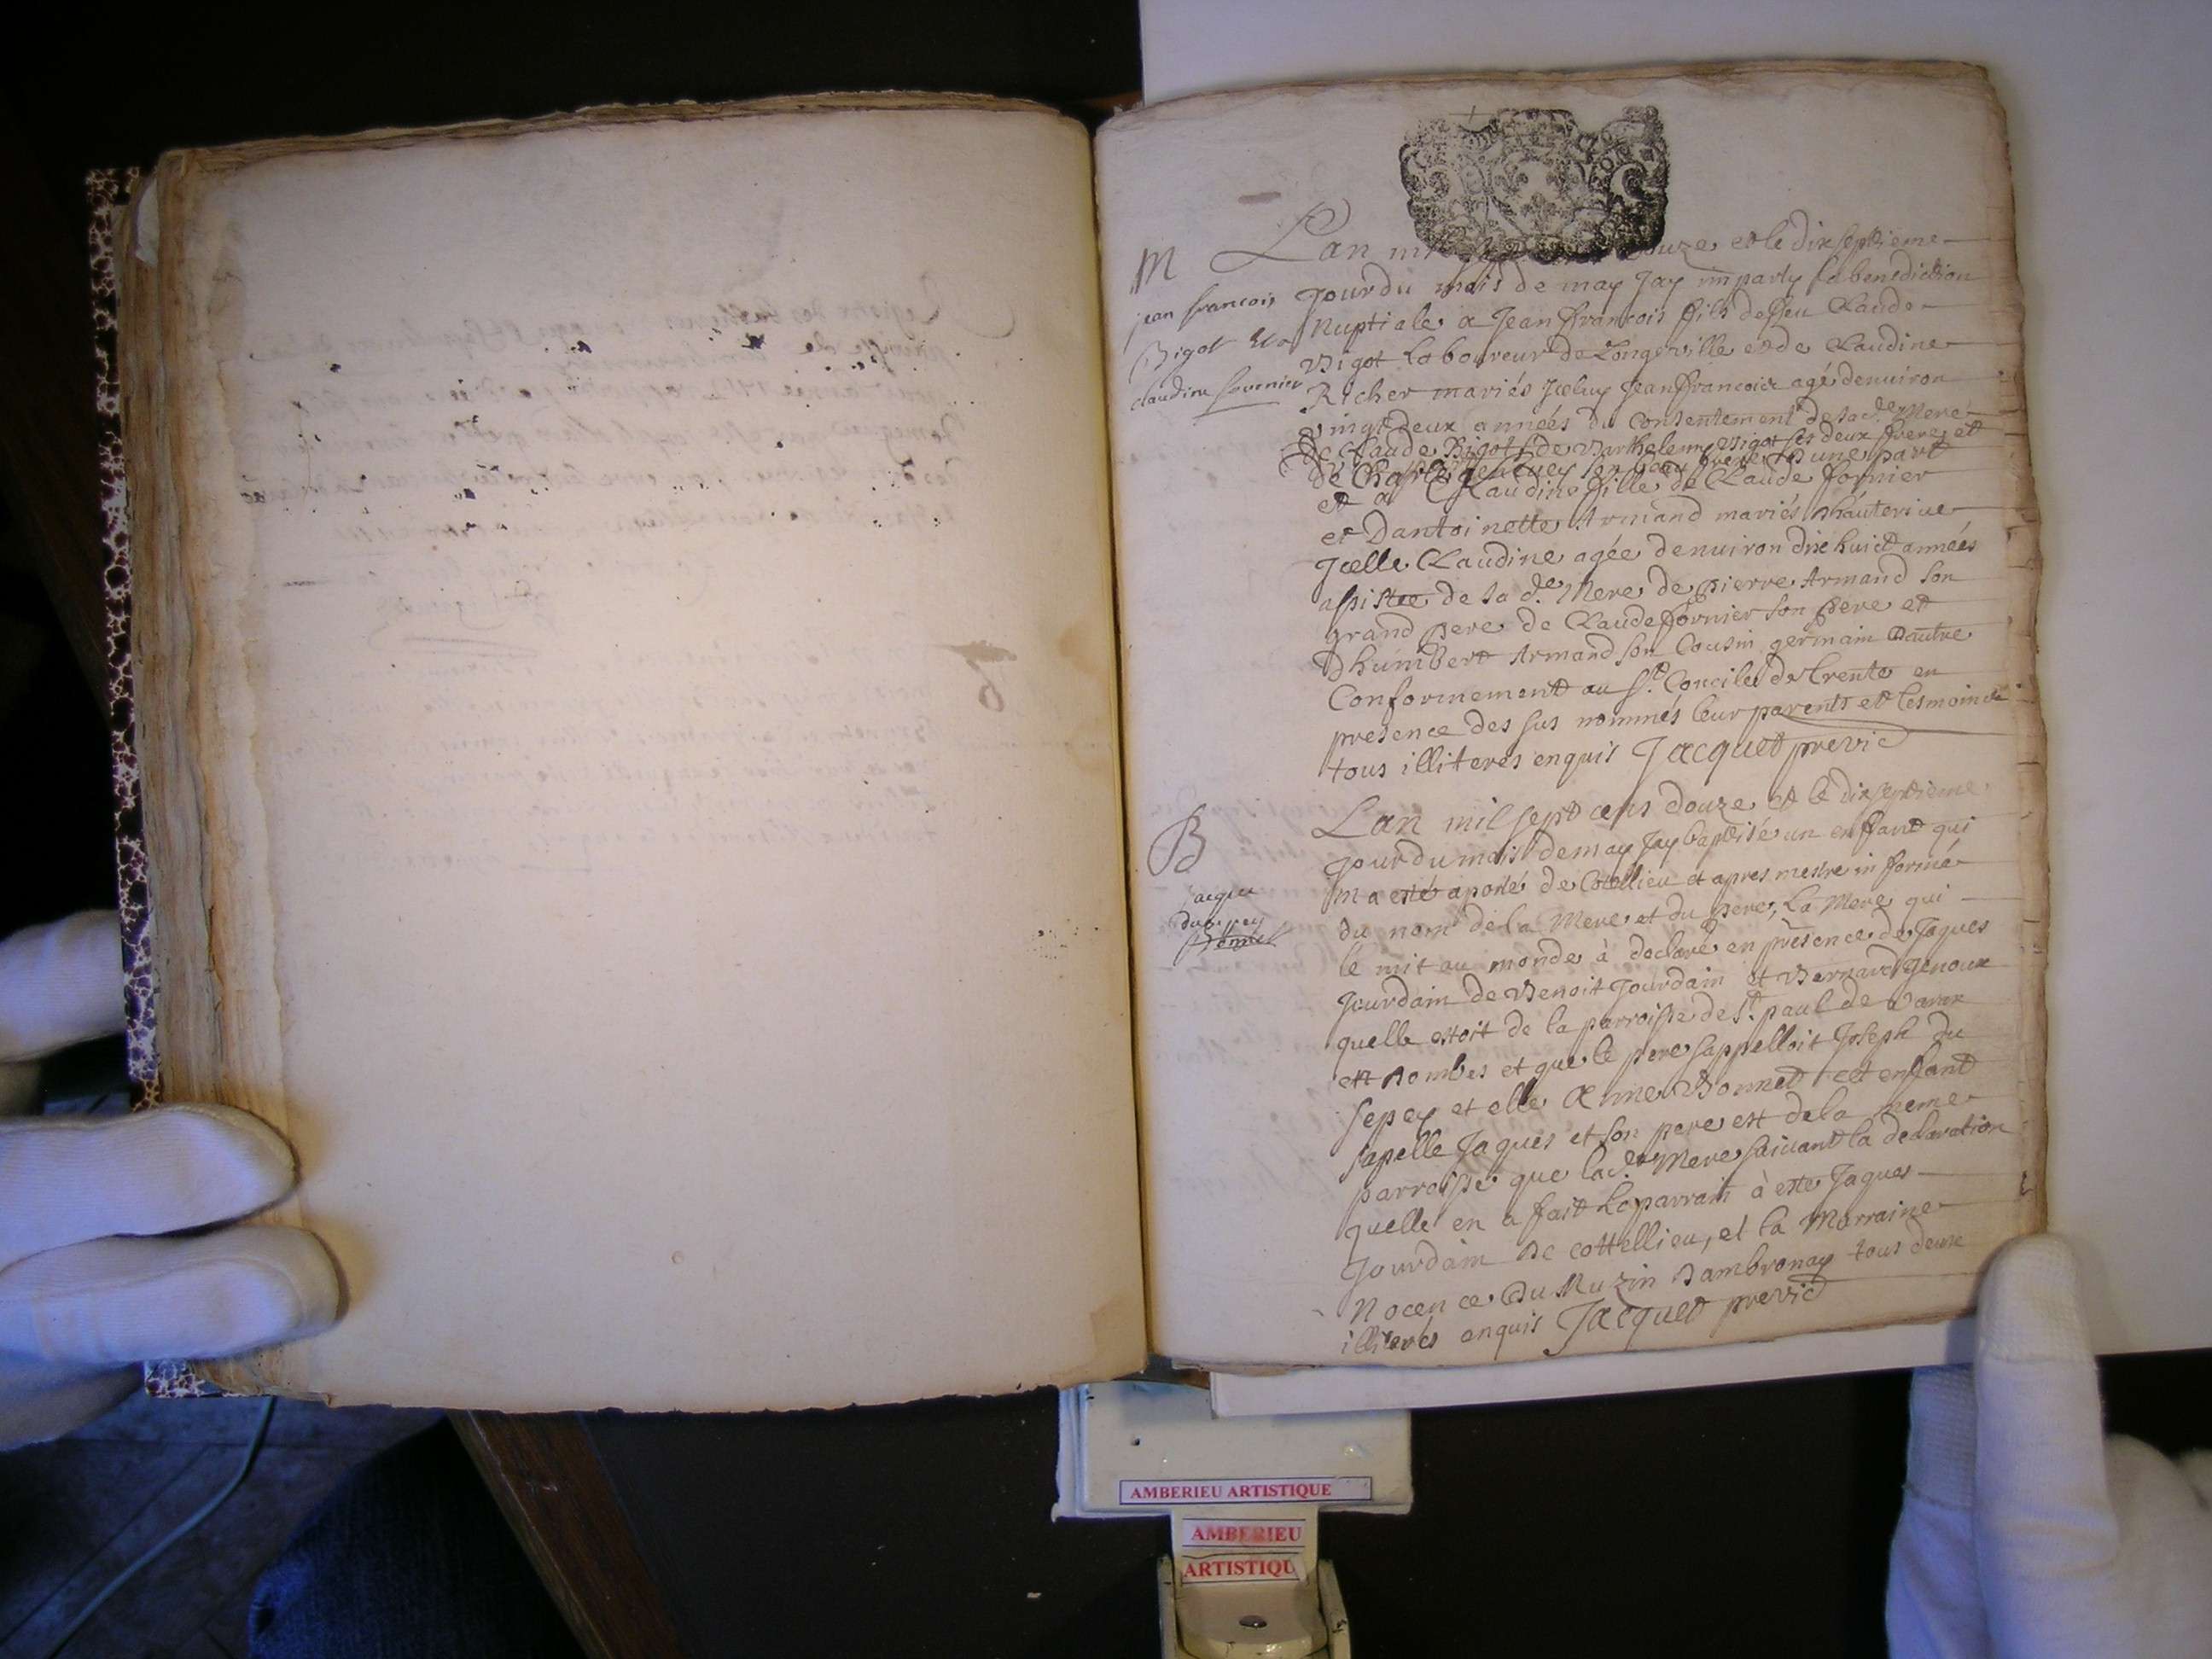 M
jean francois
Bigot &a
claudine fournier
Lan mil douze et le dixseptieme
Jour du mois de may Jay imparty la benediction
Nuptiale a Jean francois fils de feu Claude
Bigot laboureur de Longeville et de Claudine
Richer mariés Jceluy Jean francois agé denuiron
vingt deux années du Consentement de sa de. Mere
de Claude Bigot, de Barthelemy Bigot ses deux freres et
de Charle son beau frere Dune part
et a Claudine fille de Claude fornier
et Dantoinette Armand mariés Dhauterive
Jcelle Claudine agée denuiron dix huict années
assistee de sa de. Mere de Pierre Armand son
grand pere de Claude fornier son pere et
Dhumbert Armand son Cousin germain Dautre
Conformement au St. Concile de Trente en
presence des sus nommés leur parents et tesmoins
tous illiteres enquis Jacquet previc
B
jaque
du sepey
Bonnet
Lan mil sept cens douze et le dixseptieme
Jour du mois de may Jay baptisé un enfant qui
ma esté aporté de Cotellieu et apres mestre informé
du nom de la Mere et du pere, La Mere qui
le mit au monde à declaré en presence de Jaques
Jourdain de Benoit Jourdain et Bernard Genoux
quelle estoit de la parroisse de St. paul de Varax
en Dombes et que le pere sappelloit Joseph du
sepey et elle Anne Bonnet cet enfant
sapelle Jaques et son pere est de la meme
parroisse que lade. Mere suivant la declaration
quelle en a fait Le parrain à esté Jaques
Jourdain de cottellieu, et la Marraine
Nocence Du Muzin Dambronay tous deux
illiterés enquis Jacquet previc
AMBERIEU ARTISTIQUE
AMBERIEU
ARTISTIQU